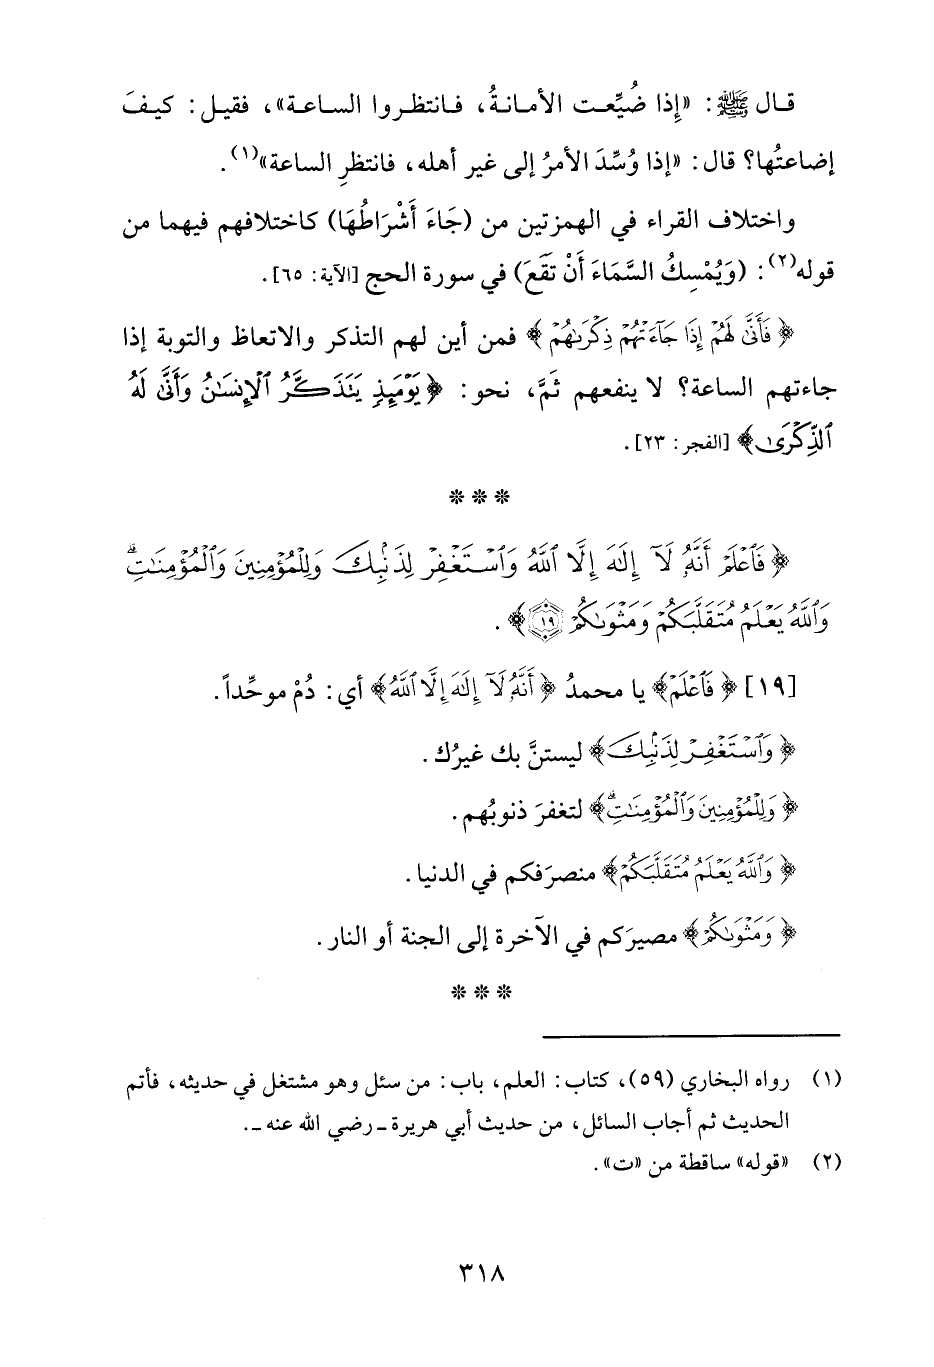 قال ﷺ: «إِذا ضُيِّعت الأمانةُ، فانتظروا الساعة»، فقيل: كيفَ
إضاعتُها؟ قال: «إذا وُسِّدَ الأمرُ إلى غير أهله، فانتظرِ الساعة»(١).
واختلاف القراء في الهمزتين من (جَاءَ أَشْرَاطُهَا) كاختلافهم فيهما من
قوله(٢): (وَيُمْسِكُ السَّمَاءَ أَنْ تَقَعَ) في سورة الحج [الآية: ٦٥].
﴿فَأَنَّىٰ لَهُمْ إِذَا جَآءَتْهُمْ ذِكْرَىٰهُمْ﴾ فمن أين لهم التذكر والاتعاظ والتوبة إذا
جاءتهم الساعة؟ لا ينفعهم ثَمَّ، نحو: ﴿يَوْمَئِذٍ يَتَذَكَّرُ ٱلْإِنسَٰنُ وَأَنَّىٰ لَهُ
ٱلذِّكْرَىٰ﴾ [الفجر: ٢٣].
***
﴿فَٱعْلَمْ أَنَّهُۥ لَآ إِلَٰهَ إِلَّا ٱللَّهُ وَٱسْتَغْفِرْ لِذَنۢبِكَ وَلِلْمُؤْمِنِينَ وَٱلْمُؤْمِنَٰتِ ۗ
وَٱللَّهُ يَعْلَمُ مُتَقَلَّبَكُمْ وَمَثْوَىٰكُمْ ١٩﴾.
[١٩] ﴿فَٱعْلَمْ﴾ يا محمدُ ﴿أَنَّهُۥ لَآ إِلَٰهَ إِلَّا ٱللَّهُ﴾ أي: دُمْ موحِّداً.
﴿وَٱسْتَغْفِرْ لِذَنۢبِكَ﴾ ليستنَّ بك غيرُك.
﴿وَلِلْمُؤْمِنِينَ وَٱلْمُؤْمِنَٰتِ ۗ﴾ لتغفرَ ذنوبُهم.
﴿وَٱللَّهُ يَعْلَمُ مُتَقَلَّبَكُمْ﴾ منصرَفكم في الدنيا.
﴿وَمَثْوَىٰكُمْ﴾ مصيرَكم في الآخرة إلى الجنة أو النار.
***
(١) رواه البخاري (٥٩)، كتاب: العلم، باب: من سئل وهو مشتغل في حديثه، فأتم
الحديث ثم أجاب السائل، من حديث أبي هريرة ـ رضي الله عنه ـ.
(٢) «قوله» ساقطة من «ت».
٣١٨